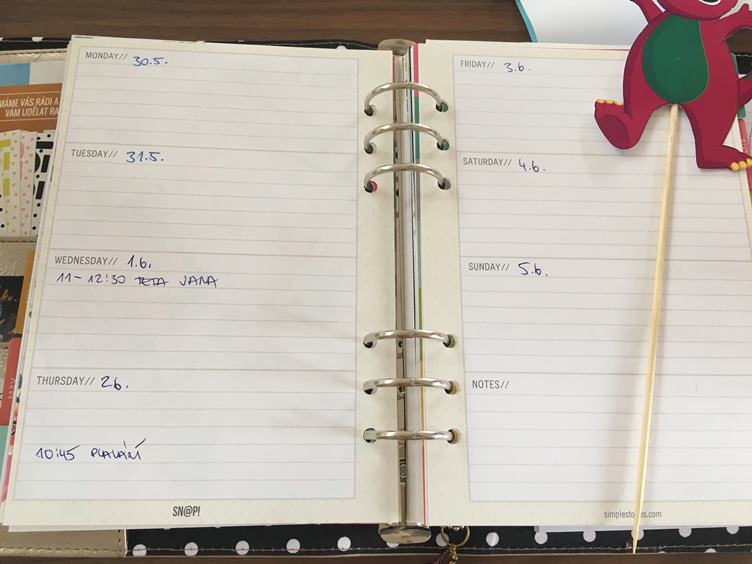 MÁME VÁS RÁDI A
VÁM UDĚLAT RA
MONDAY// 30.5.
TUESDAY// 31.5.
WEDNESDAY// 1.6.
11-12:30 TETA JANA
THURSDAY// 2.6.
10:45 PLAVÁNÍ
SN@P!
FRIDAY// 3.6.
SATURDAY// 4.6.
SUNDAY// 5.6.
NOTES//